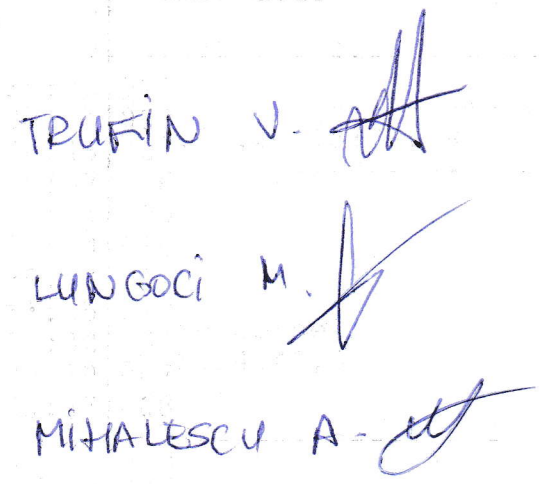 TRUFiN V.
LUNGOCi M.
MiHALESCU A-